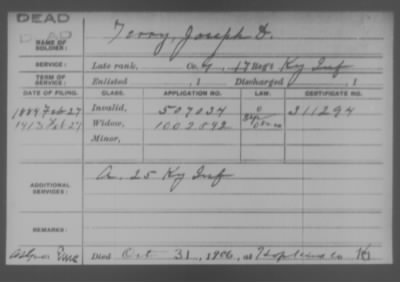 DEAD
DEAD
NAME OF SOLDIER: Terry, Joseph D.
SERVICE: Late rank, Co. G, 17 Regt Ky Inf
TERM OF SERVICE: Enlisted , 1 Discharged , 1
DATE OF FILING. CLASS. APPLICATION NO. LAW. CERTIFICATE NO.
1884 Feb 27 Invalid, 507034 311294
1913 Feb 27 Widow, 1002592
Minor,
ADDITIONAL SERVICES: A. 25 Ky Inf
REMARKS:
Died Oct 31, 1906, at Hopkins Co Ky